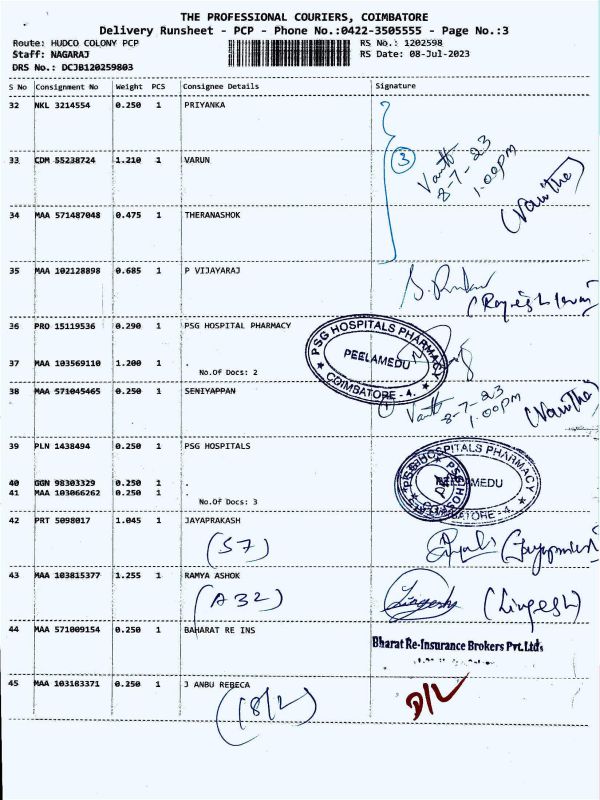 THE PROFESSIONAL COURIERS, COIMBATORE
Delivery Runsheet - PCP - Phone No.:0422-3505555 - Page No.:3
Route: HUDCO COLONY PCP RS No.: 1202598
Staff: NAGARAJ RS Date: 08-Jul-2023
DRS No.: DCJB120259803
S No Consignment No Weight PCS Consignee Details Signature
32 NKL 3214554 0.250 1 PRIYANKA
33 CDM 55238724 1.210 1 VARUN
3
8-7-23
1.00pm
(Vanitha)
34 MAA 571487048 0.475 1 THERANASHOK
35 MAA 102128898 0.685 1 P VIJAYARAJ
36 PRO 15119536 0.290 1 PSG HOSPITAL PHARMACY
PSG HOSPITALS PHARMACY
PEELAMEDU
COIMBATORE - 4.
37 MAA 103569110 1.200 1 .
No.Of Docs: 2
38 MAA 571045465 0.250 1 SENIYAPPAN
1
8-7-23
1.00pm
(Vanitha)
39 PLN 1438494 0.250 1 PSG HOSPITALS
PSG HOSPITALS PHARMACY
PEELAMEDU
COIMBATORE - 4.
40 GGN 98303329 0.250 1 .
41 MAA 103066262 0.250 1 .
No.Of Docs: 3
42 PRT 5098017 1.045 1 JAYAPRAKASH
(57)
43 MAA 103815377 1.255 1 RAMYA ASHOK
(A32)
(Lingesh)
44 MAA 571009154 0.250 1 BAHARAT RE INS
Bharat Re-Insurance Brokers Pvt.Ltd.
45 MAA 103183371 0.250 1 J ANBU REBECA
(18/2)
D/L